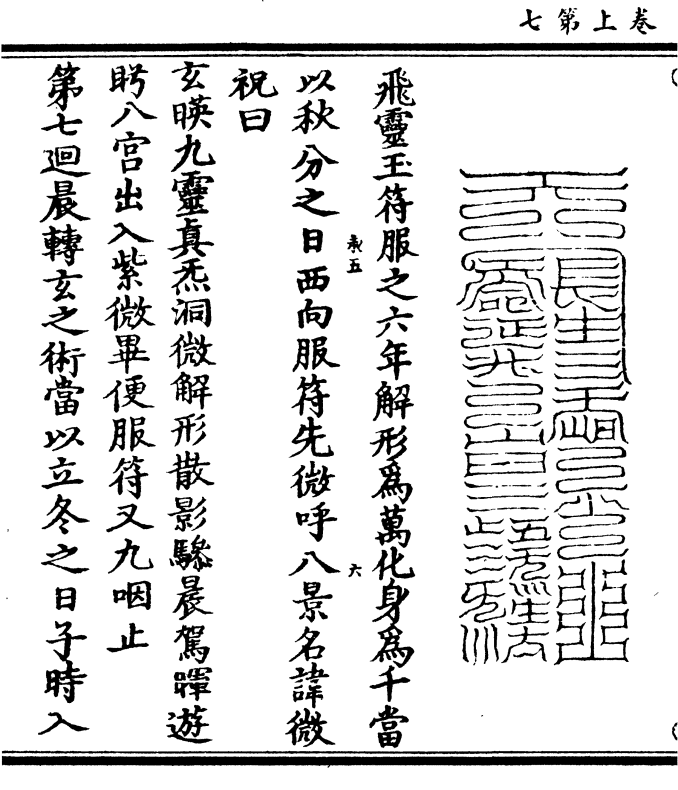 卷上第七
飛靈玉符服之六年解形爲萬化身爲千當
以秋分之日西向服符先微呼八景名諱微
承五
六
祝曰
玄暎九靈眞炁洞微解形散影驂晨駕暉遊
眄八宮出入紫微畢便服符又九咽止
第七迴晨轉玄之術當以立冬之日子時入